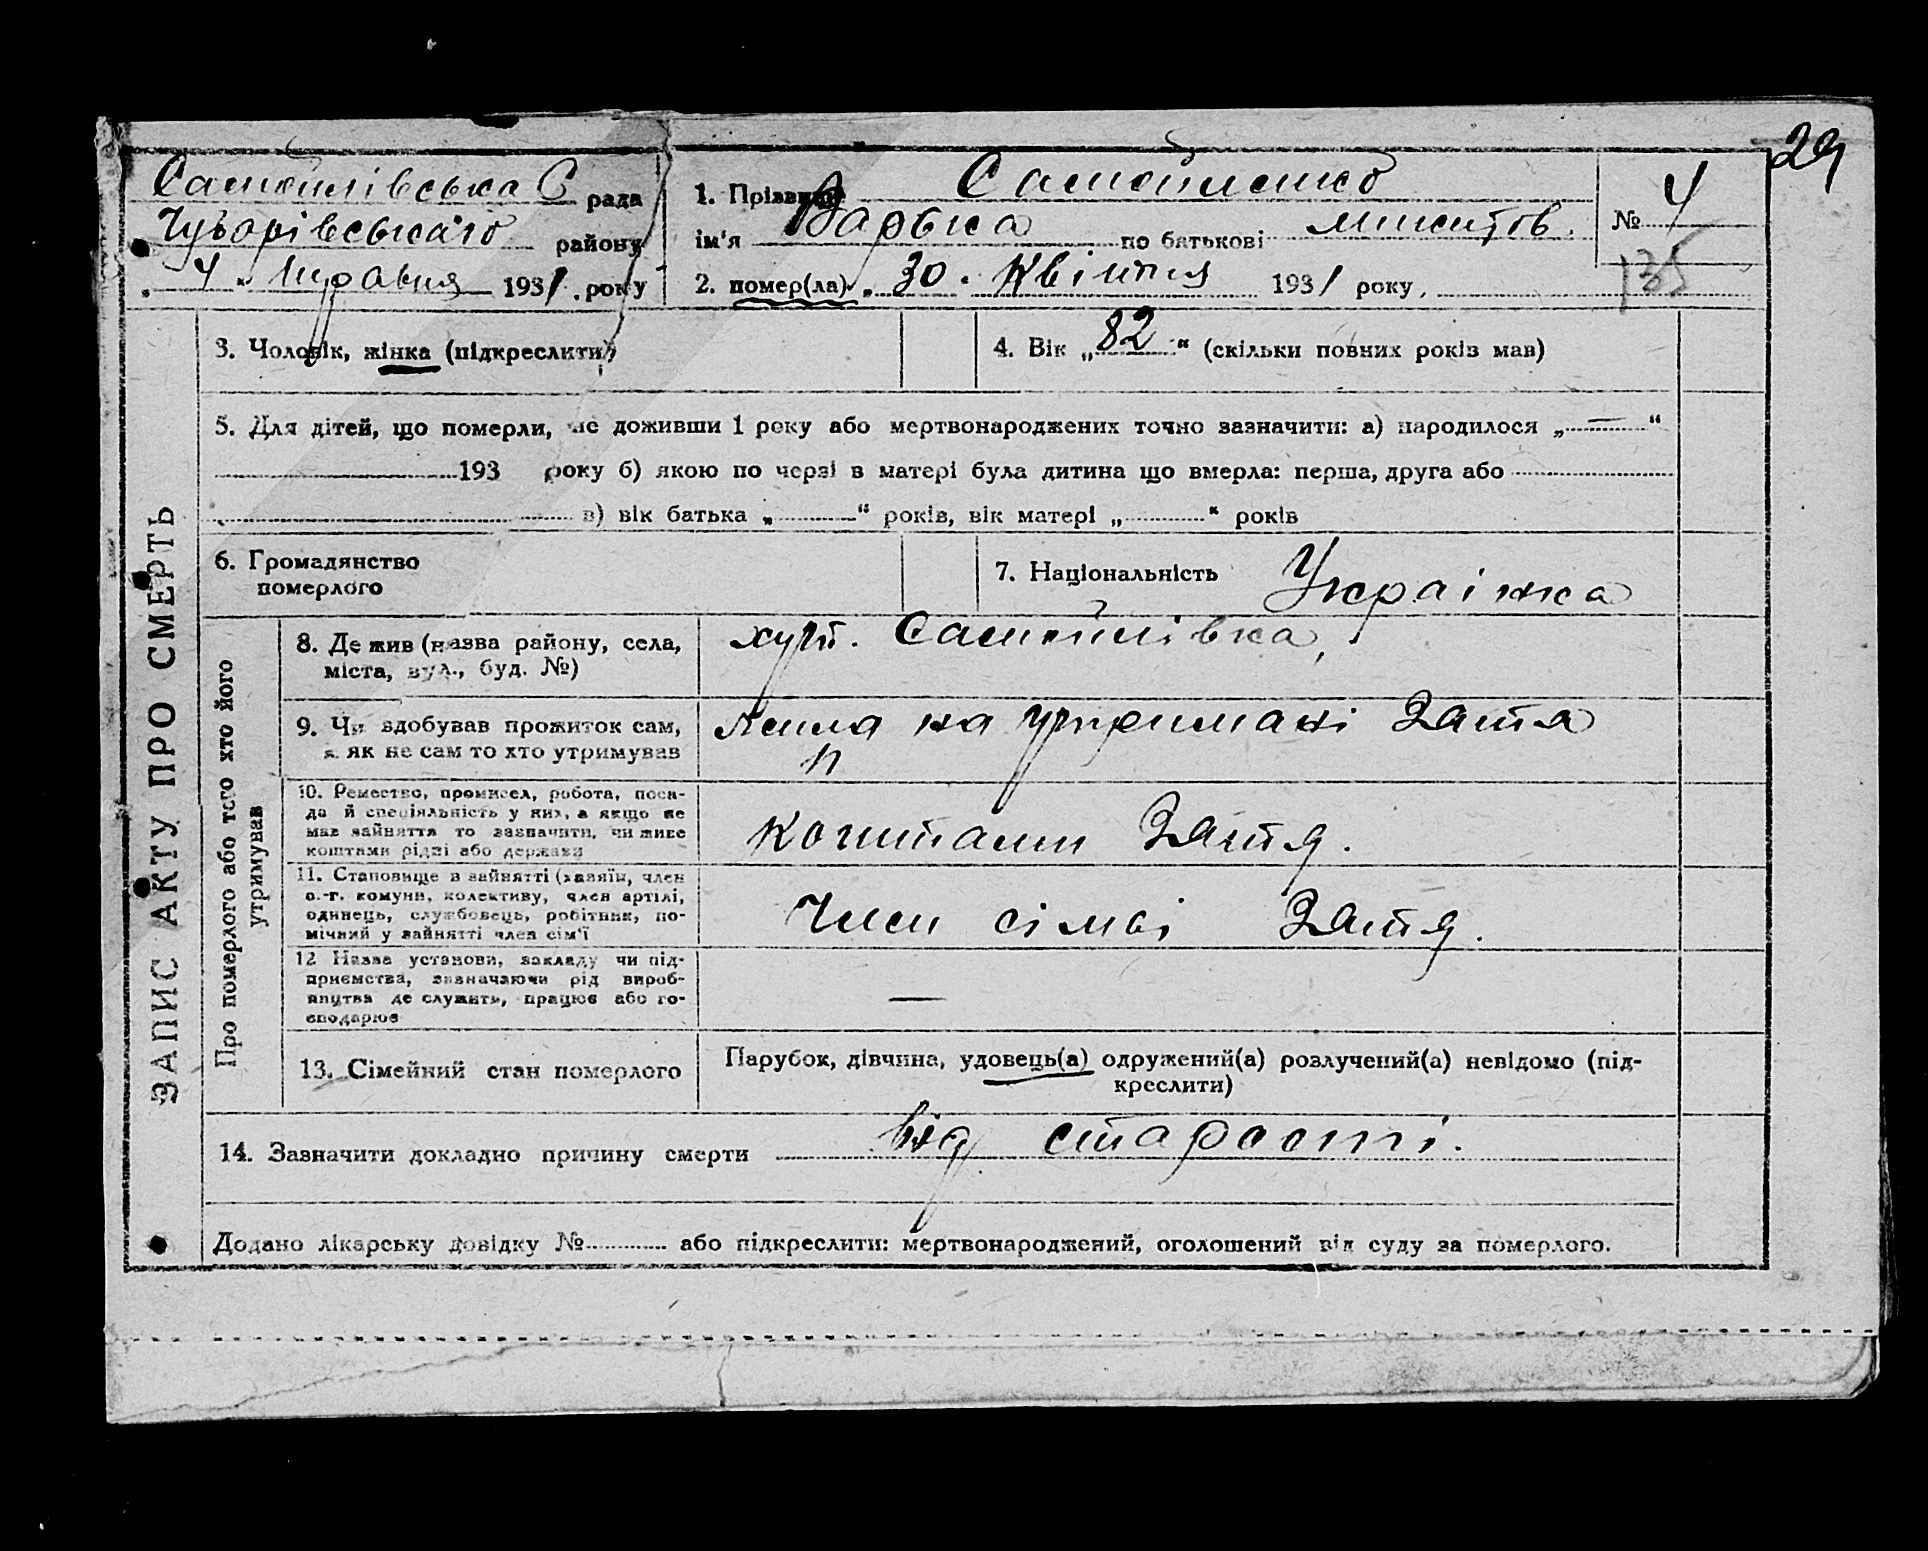 29
Самойлівська С рада
району
„ 4 " травня 1931 року
1. Прізвище Самойленко
№ 4
ім'я Варька по батькові
135
2. помер(ла) „ 30 " Квітня 1931 року,
3. Чоловік, жінка (підкреслити)
4. Вік „ 82 " (скільки повних років мав)
5. Для дітей, що померли, не доживши 1 року або мертвонароджених точно зазначити: а) народилося „ — "
193 року б) якою по черзі в матері була дитина що вмерла: перша, друга або
в) вік батька „ " років, вік матері „ " років
6. Громадянство
померлого
7. Національність Украінка
ЗАПИС АКТУ ПРО СМЕРТЬ
Про померлого або того хто його
утримував
8. Де жив (назва району, села,
міста, вул., буд. №)
хут. Самойлівка,
9. Чи здобував прожиток сам,
а як не сам то хто утримував
на утримані Затя
10. Ремество, промисел, робота, поса-
да й спеціяльність у них, а якщо не
мав зайняття то зазначити, чи живе
коштами рідні або держави
коштами Затя.
11. Становище в зайнятті (хазяїн, член
с.-г. комуни, колективу, член артілі,
одинець, службовець, робітник, по-
мічний у зайнятті член сім'ї
Член сімьі Затя.
12 Назва установи, закладу чи під-
приємства, зазначаючи рід вироб-
ництва де служить, працює або го-
сподарює
—
13. Сімейний стан померлого
Парубок, дівчина, удовець(а) одружений(а) розлучений(а) невідомо (під-
креслити)
14. Зазначити докладно причину смерти від старости.
Додано лікарську довідку № або підкреслити: мертвонароджений, оголошений від суду за померлого.